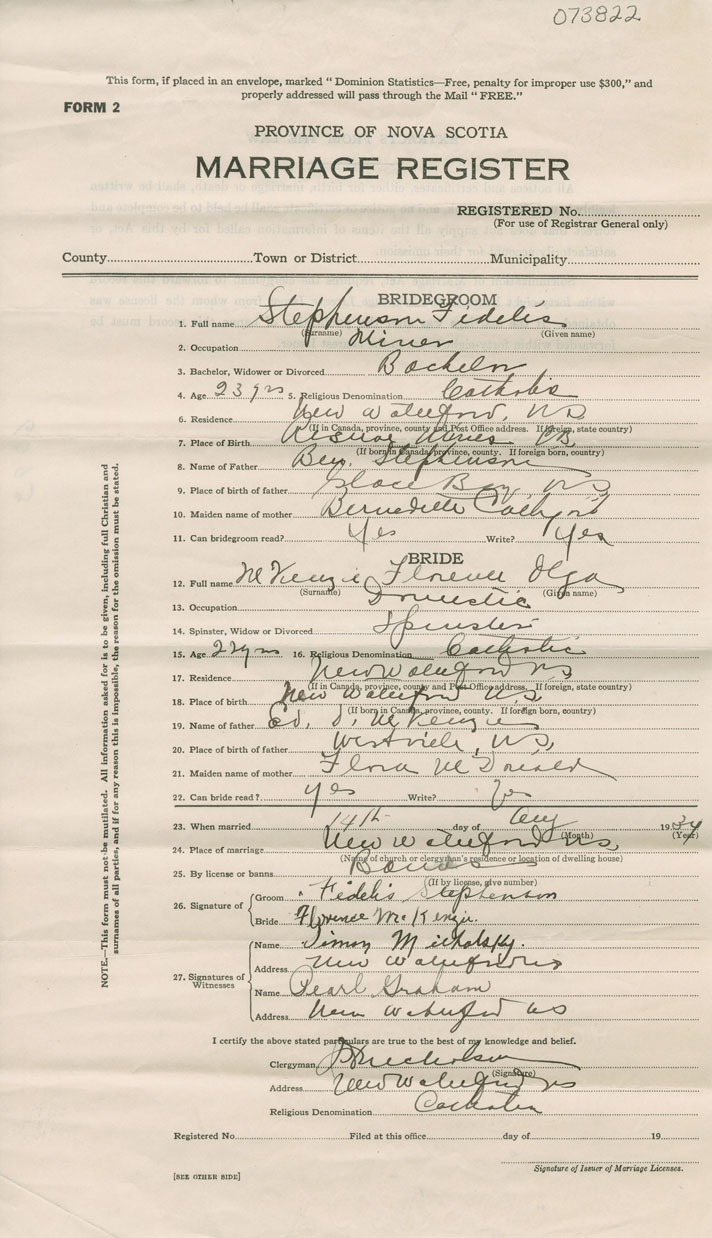 073822
This form, if placed in an envelope, marked “ Dominion Statistics—Free, penalty for improper use $300,” and
properly addressed will pass through the Mail “ FREE.”
FORM 2
PROVINCE OF NOVA SCOTIA
MARRIAGE REGISTER
REGISTERED No.
(For use of Registrar General only)
County Town or District Municipality
BRIDEGROOM
1. Full name Stephenson Fidelis
(Surname) (Given name)
2. Occupation Miner
3. Bachelor, Widower or Divorced Bachelor
4. Age 23 yrs 5. Religious Denomination Catholic
6. Residence New Waterford, NS
(If in Canada, province, county and Post Office address. If foreign, state country)
7. Place of Birth Reserve Mines CB
(If born in Canada, province, county. If foreign born, country)
8. Name of Father Benj. Stephenson
9. Place of birth of father Glace Bay, NS
10. Maiden name of mother Bernadette
11. Can bridegroom read? Yes Write? Yes
BRIDE
12. Full name McKenzie, Florence Olga
(Surname) (Given name)
13. Occupation Domestic
14. Spinster, Widow or Divorced Spinster
15. Age yrs 16. Religious Denomination Catholic
17. Residence New Waterford NS
(If in Canada, province, county and Post Office address. If foreign, state country)
18. Place of birth New Waterford NS
(If born in Canada, province, county. If foreign born, country)
19. Name of father Ed. J. McKenzie
20. Place of birth of father Westville, NS
21. Maiden name of mother Flora McDonald
22. Can bride read? yes Write?
23. When married 14th day of Aug 1934
(Month) (Year)
24. Place of marriage New Waterford NS
(Name of church or clergyman's residence or location of dwelling house)
25. By license or banns Banns
(If by license, give number)
26. Signature of
Groom Fidelis Stephenson
Bride Florence McKenzie.
27. Signatures of Witnesses
Name Simon Michalsky.
Address New Waterford NS
Name Pearl Graham
Address New Waterford NS
I certify the above stated particulars are true to the best of my knowledge and belief.
Clergyman Nicholson
(Signature)
Address New Waterford NS
Religious Denomination Catholic
Registered No. Filed at this office day of 19
Signature of Issuer of Marriage Licenses.
[SEE OTHER SIDE]
NOTE.—This form must not be mutilated. All information asked for is to be given, including full Christian and
surnames of all parties, and if for any reason this is impossible, the reason for the omission must be stated.